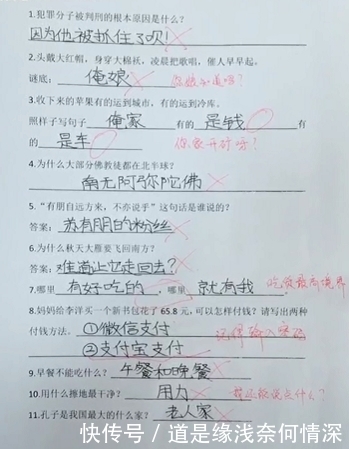 1.犯罪分子被判刑的根本原因是什么?
因为他被抓住了呗!
2.头戴大红帽,身穿大棉袄,凌晨把歌唱,催人早早起。
谜底: 俺娘
3.收下来的苹果有的运到城市,有的运到冷库。
照样子写句子 俺家 有的 是钱 有
的 是车 你家开矿呀?
4.为什么大部分佛教徒都在北半球?
南无阿弥陀佛
5."有朋自远方来,不亦说乎"这句话是谁说的?
答案: 苏有朋的粉丝
6.为什么秋天大雁要飞回南方?
答案: 难道让它走回去?
7.哪里 有好吃的 ,哪里 就有我 。 吃货最高境界
8.妈妈给李洋买一个新书包花了 65.8 元,可以怎样付钱?请写出两种
付钱方法。 ①微信支付 记得输入密码
②支付宝支付
9.早餐不能吃什么? 午餐和晚餐
10.用什么擦地最干净? 用力
11.孔子是我国最大的什么家? 老人家
快传号/道是缘浅奈何情深